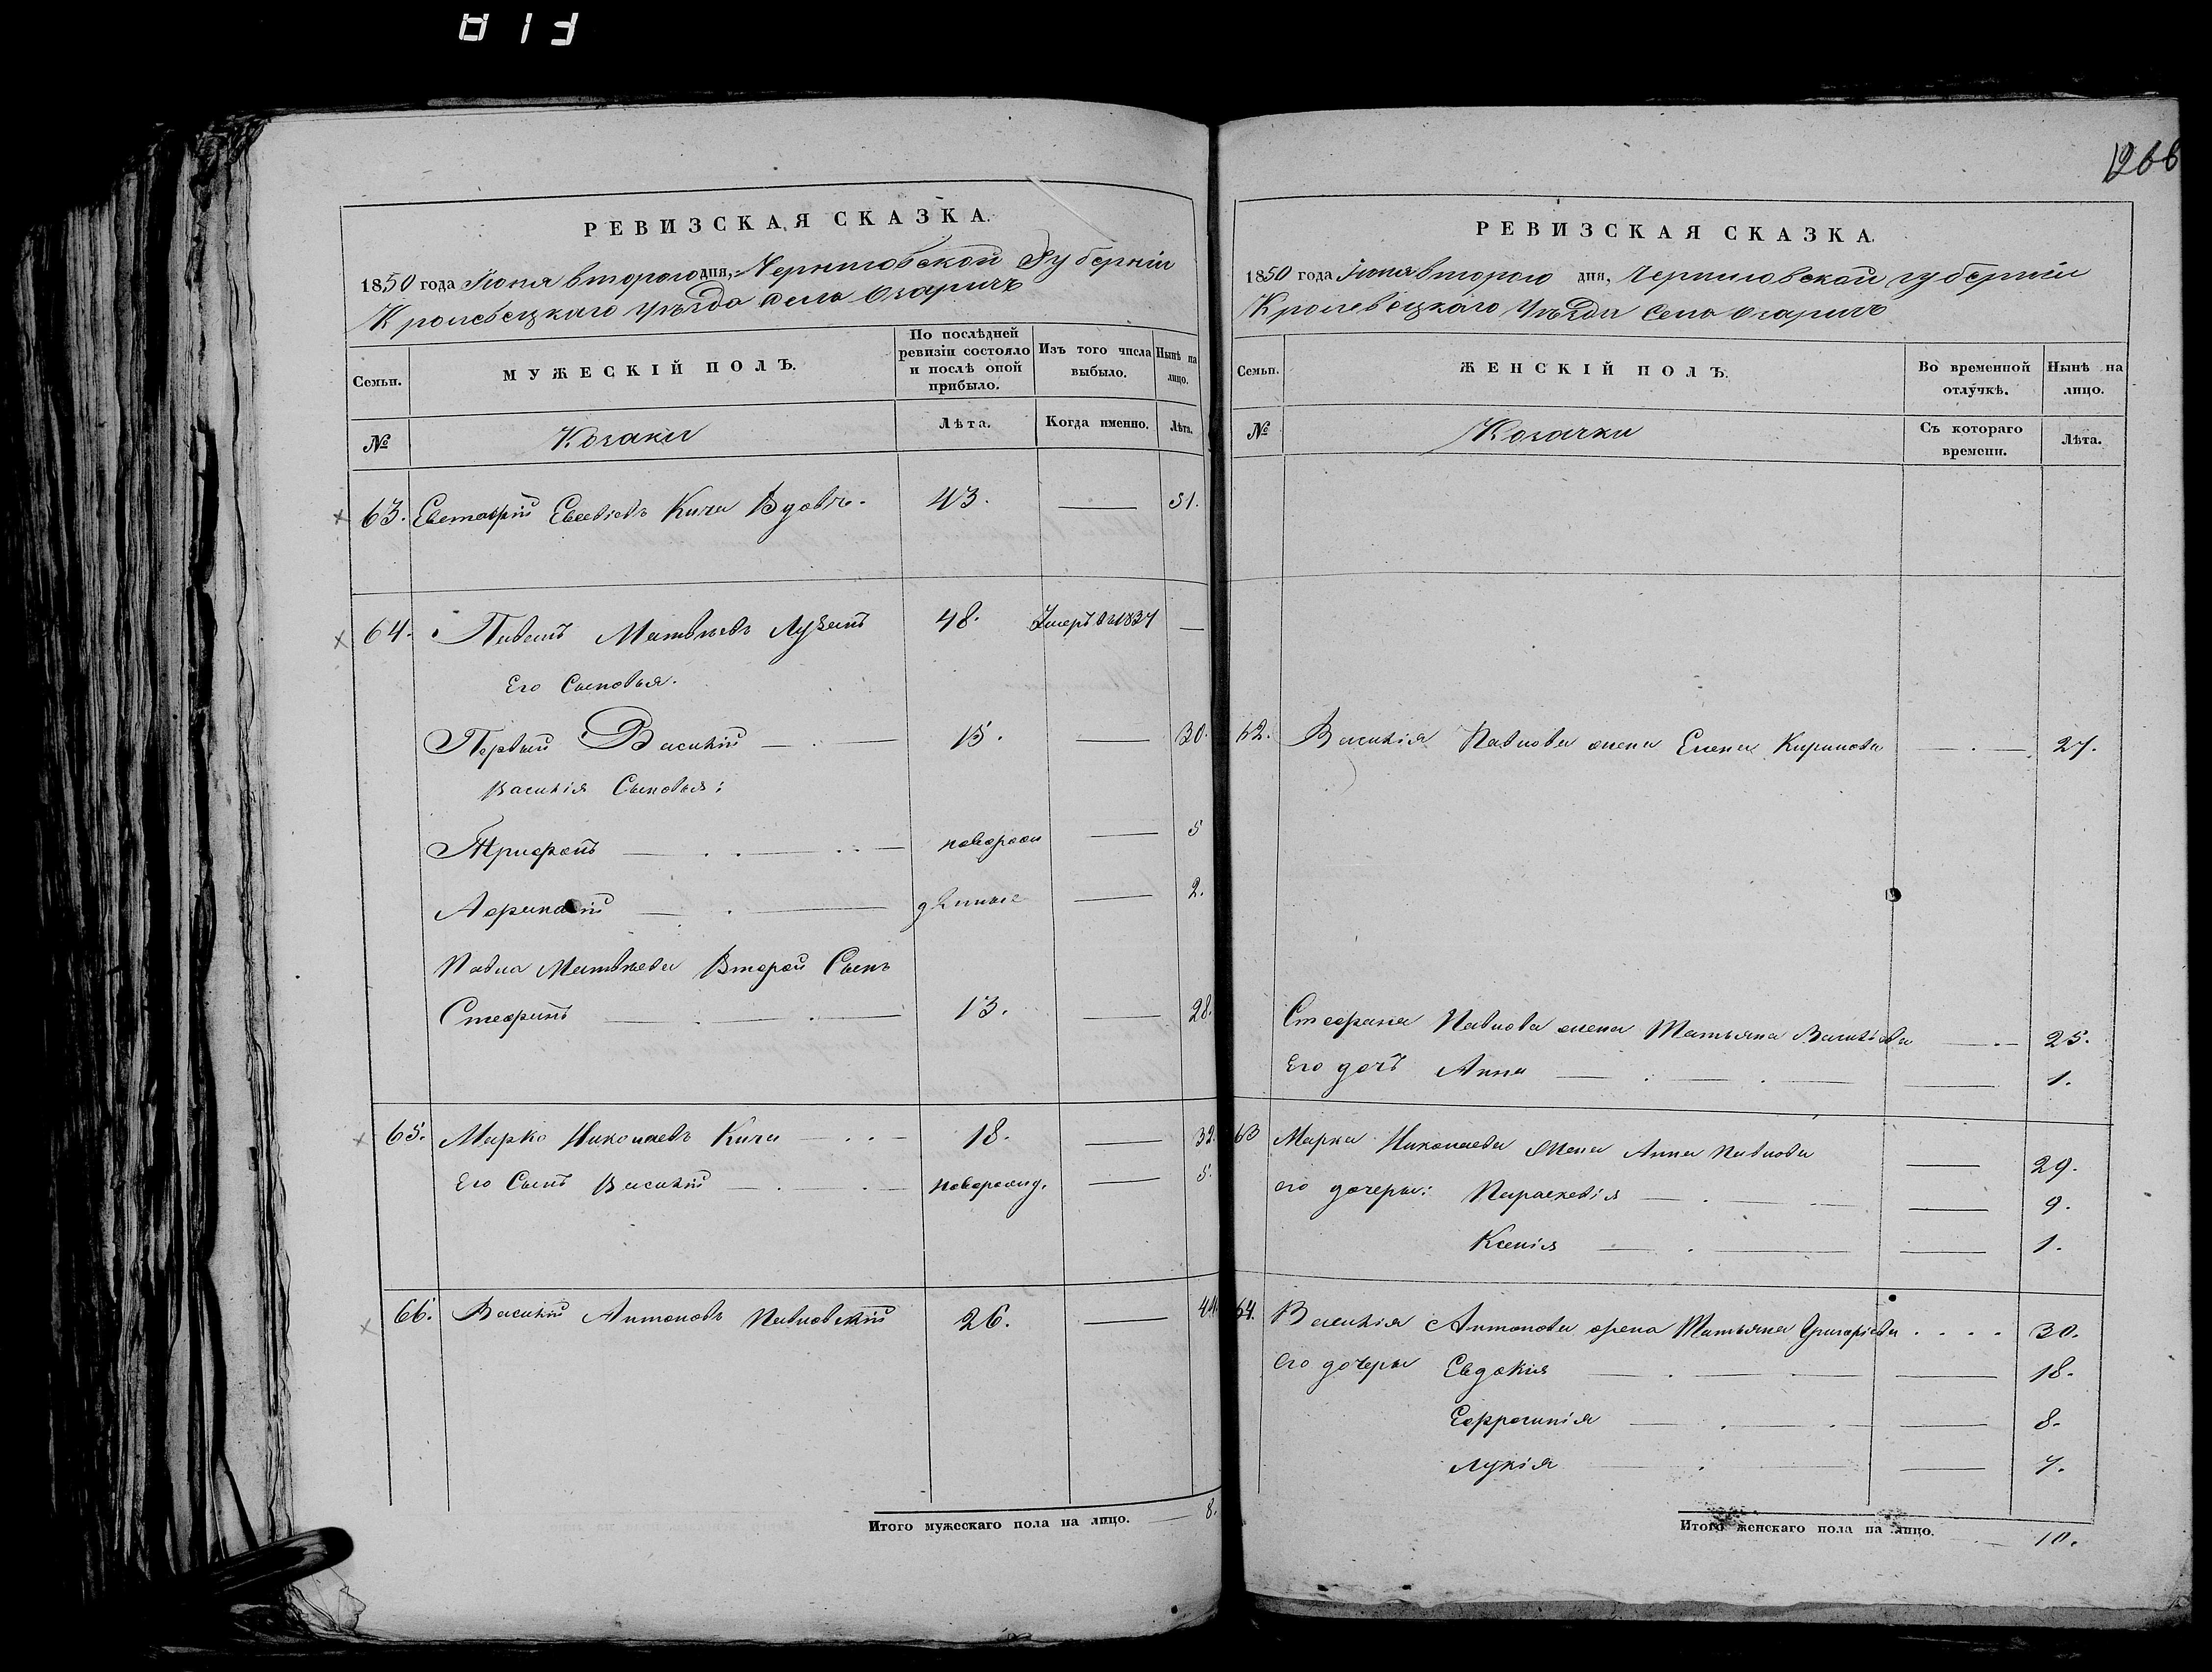 813
1266
РЕВИЗСКАЯ СКАЗКА.
1850 года Июня второго дня, Черниговской Губерніи
Кролевецкаго Уѣзда села Озаричъ
Семьи.
МУЖЕСКІЙ ПОЛЪ.
По послѣдней ревизіи состояло и послѣ оной прибыло.
Изъ того числа выбыло.
Нынѣ на лицо.
№
Козаки
Лѣта.
Когда именно.
Лѣта.
63. Евстафій Евсевіевъ Кича Вдовъ. 43. — 51.
64. Павелъ Матвѣевъ Луценъ 48. Умеръ въ 1837 —
Его Сыновья.
Первый Василій — 15. — 30.
Василія Сыновья:
Трифонъ — новорож — 5
Афанасій — денные — 2.
Павла Матвѣева Второй Сынъ
Стефанъ — 13. — 28.
65. Марко Николаевъ Кича — 18. — 32.
Его Сынъ Василій — новорожд. — 5.
66. Василій Антоновъ Павловскій 26. — 44.
Итого мужескаго пола на лицо. — 8.
РЕВИЗСКАЯ СКАЗКА.
1850 года Июня второго дня, Черниговской губерніи
Кролевецкаго Уѣзда Села Озаричъ
Семьи.
ЖЕНСКІЙ ПОЛЪ.
Во временной отлучкѣ.
Нынѣ на лицо.
№
Козачки
Съ котораго времени.
Лѣта.
62. Василія Павлова жена Елена Кирилова — 27.
Стефана Павлова жена Татьяна Василіева — 25.
Его дочь Анна — 1.
63 Марка Николаева жена Анна Павлова — 29.
его дочери: Параскевія — 9.
Ксенія — 1.
64. Василія Антонова жена Татьяна Григоріева . . . . 30.
Его дочери Евдокія — 18.
Ефросинія — 8.
Лукія — 7.
Итого женскаго пола на лицо. — 10.